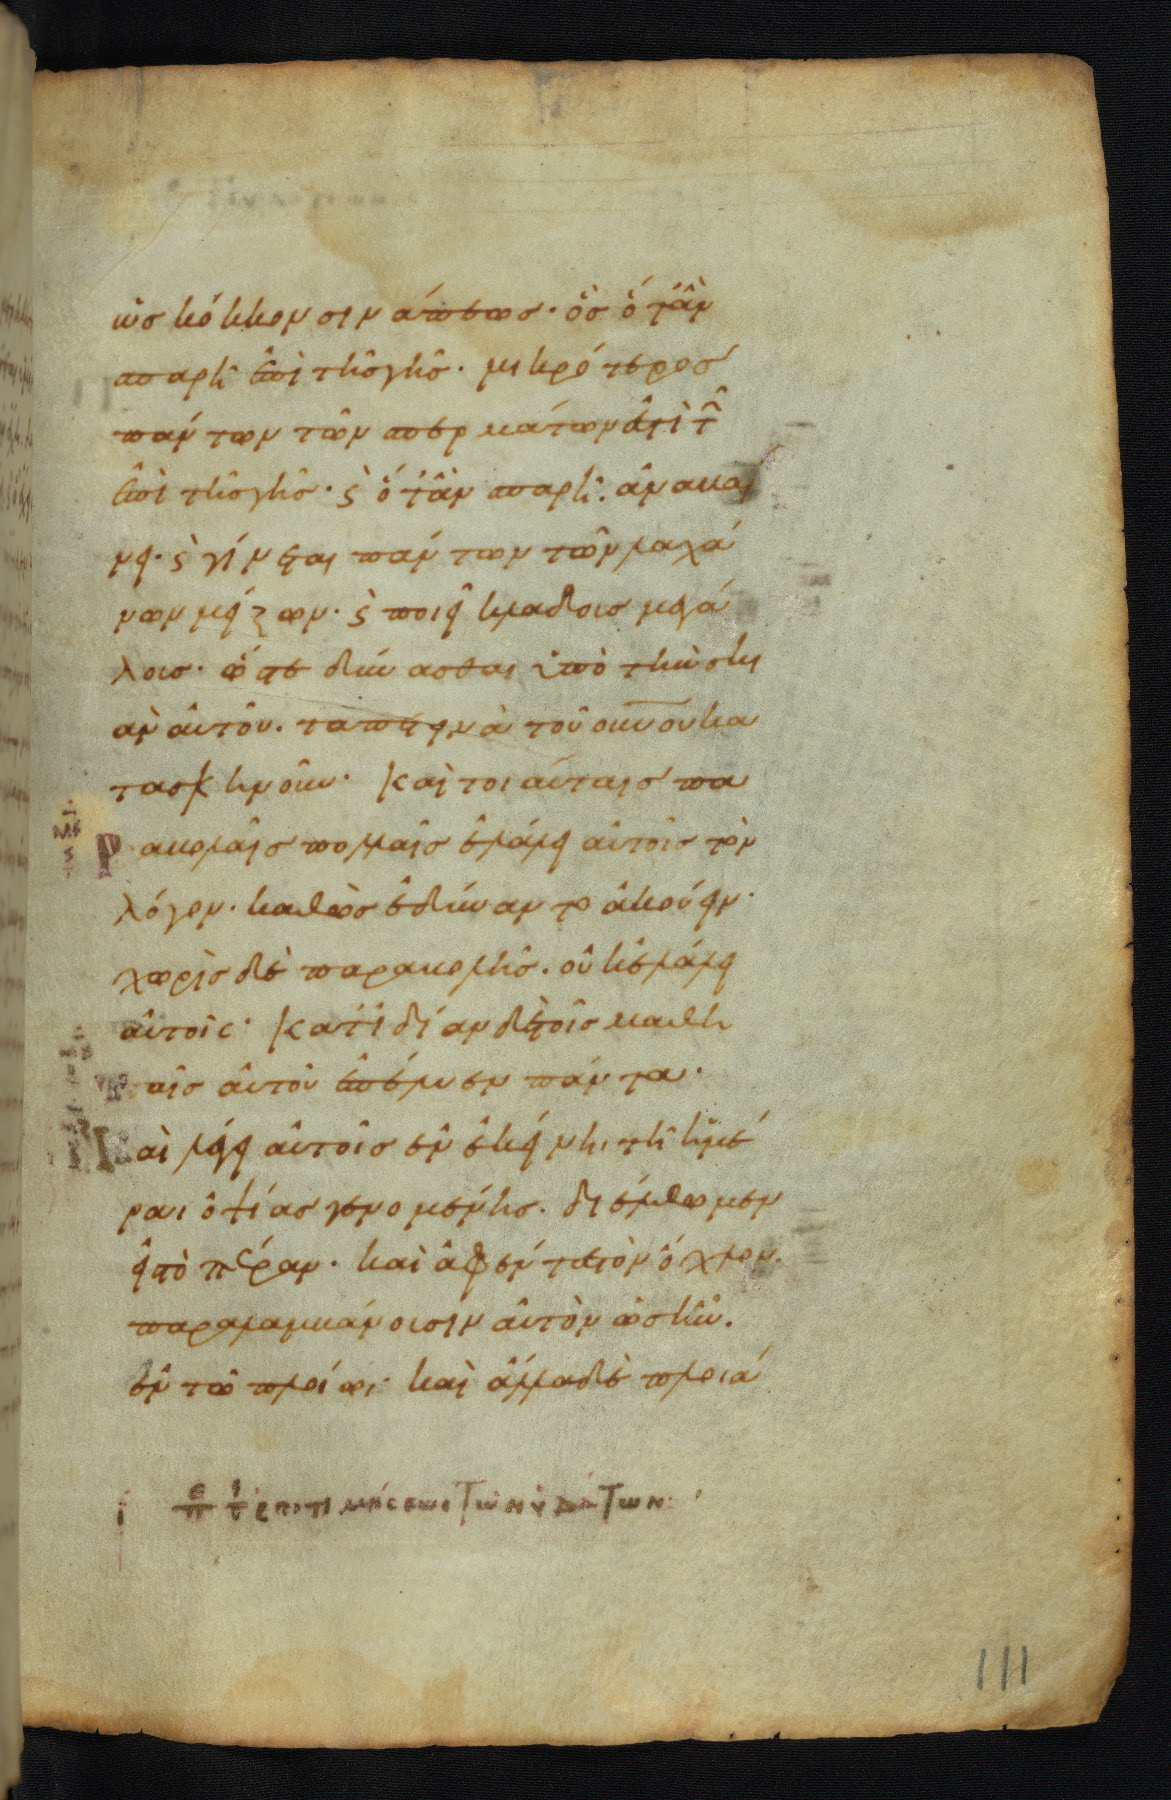 ὡς κόκκον σινάπεως· ὃς ὅταν
σπαρῇ ἐπὶ τῆς γῆς· μικρότερος
πάντων τῶν σπερμάτων ἐστὶ τῶν
ἐπὶ τῆς γῆς· ϛ ὅταν σπαρῇ· ἀναβαί
νει· ϛ γίνεται πάντων τῶν λαχά
νων μείζων· ϛ ποιεῖ κλάδους μεγά
λους· ὥστε δύνασθαι ὑπὸ τὴν σκι
ὰν αὐτοῦ· τὰ πετεινὰ τοῦ οὐνοῦ κα
τασκηνοῦν· Καὶ τοιαύταις πα
ραβολαῖς πολλαῖς ἐλάλει αὐτοῖς τὸν
λόγον· καθὼς ἐδύναντο ἀκούειν·
χωρὶς δὲ παραβολῆς· οὐκ ἐλάλει
αὐτοῖς· Κατ ἰδίαν δὲ τοῖς μαθη
ταῖς αὐτοῦ ἐπέλυεν πάντα·
Καὶ λέγει αὐτοῖς ἐν ἐκείνηι τῆ ἡμέ
ραι ὀψίας γενομένης· διέλθωμεν
εἰς τὸ πέραν· καὶ ἀφέντες τὸν ὄχλον·
παραλαμβάνουσιν αὐτὸν ὡς ἦν·
ἐν τῶ πλοίωι· καὶ ἄλλα δὲ πλοιά
ι πε τ ἐπιτιμήσεως τῶν ὑδάτων:
111